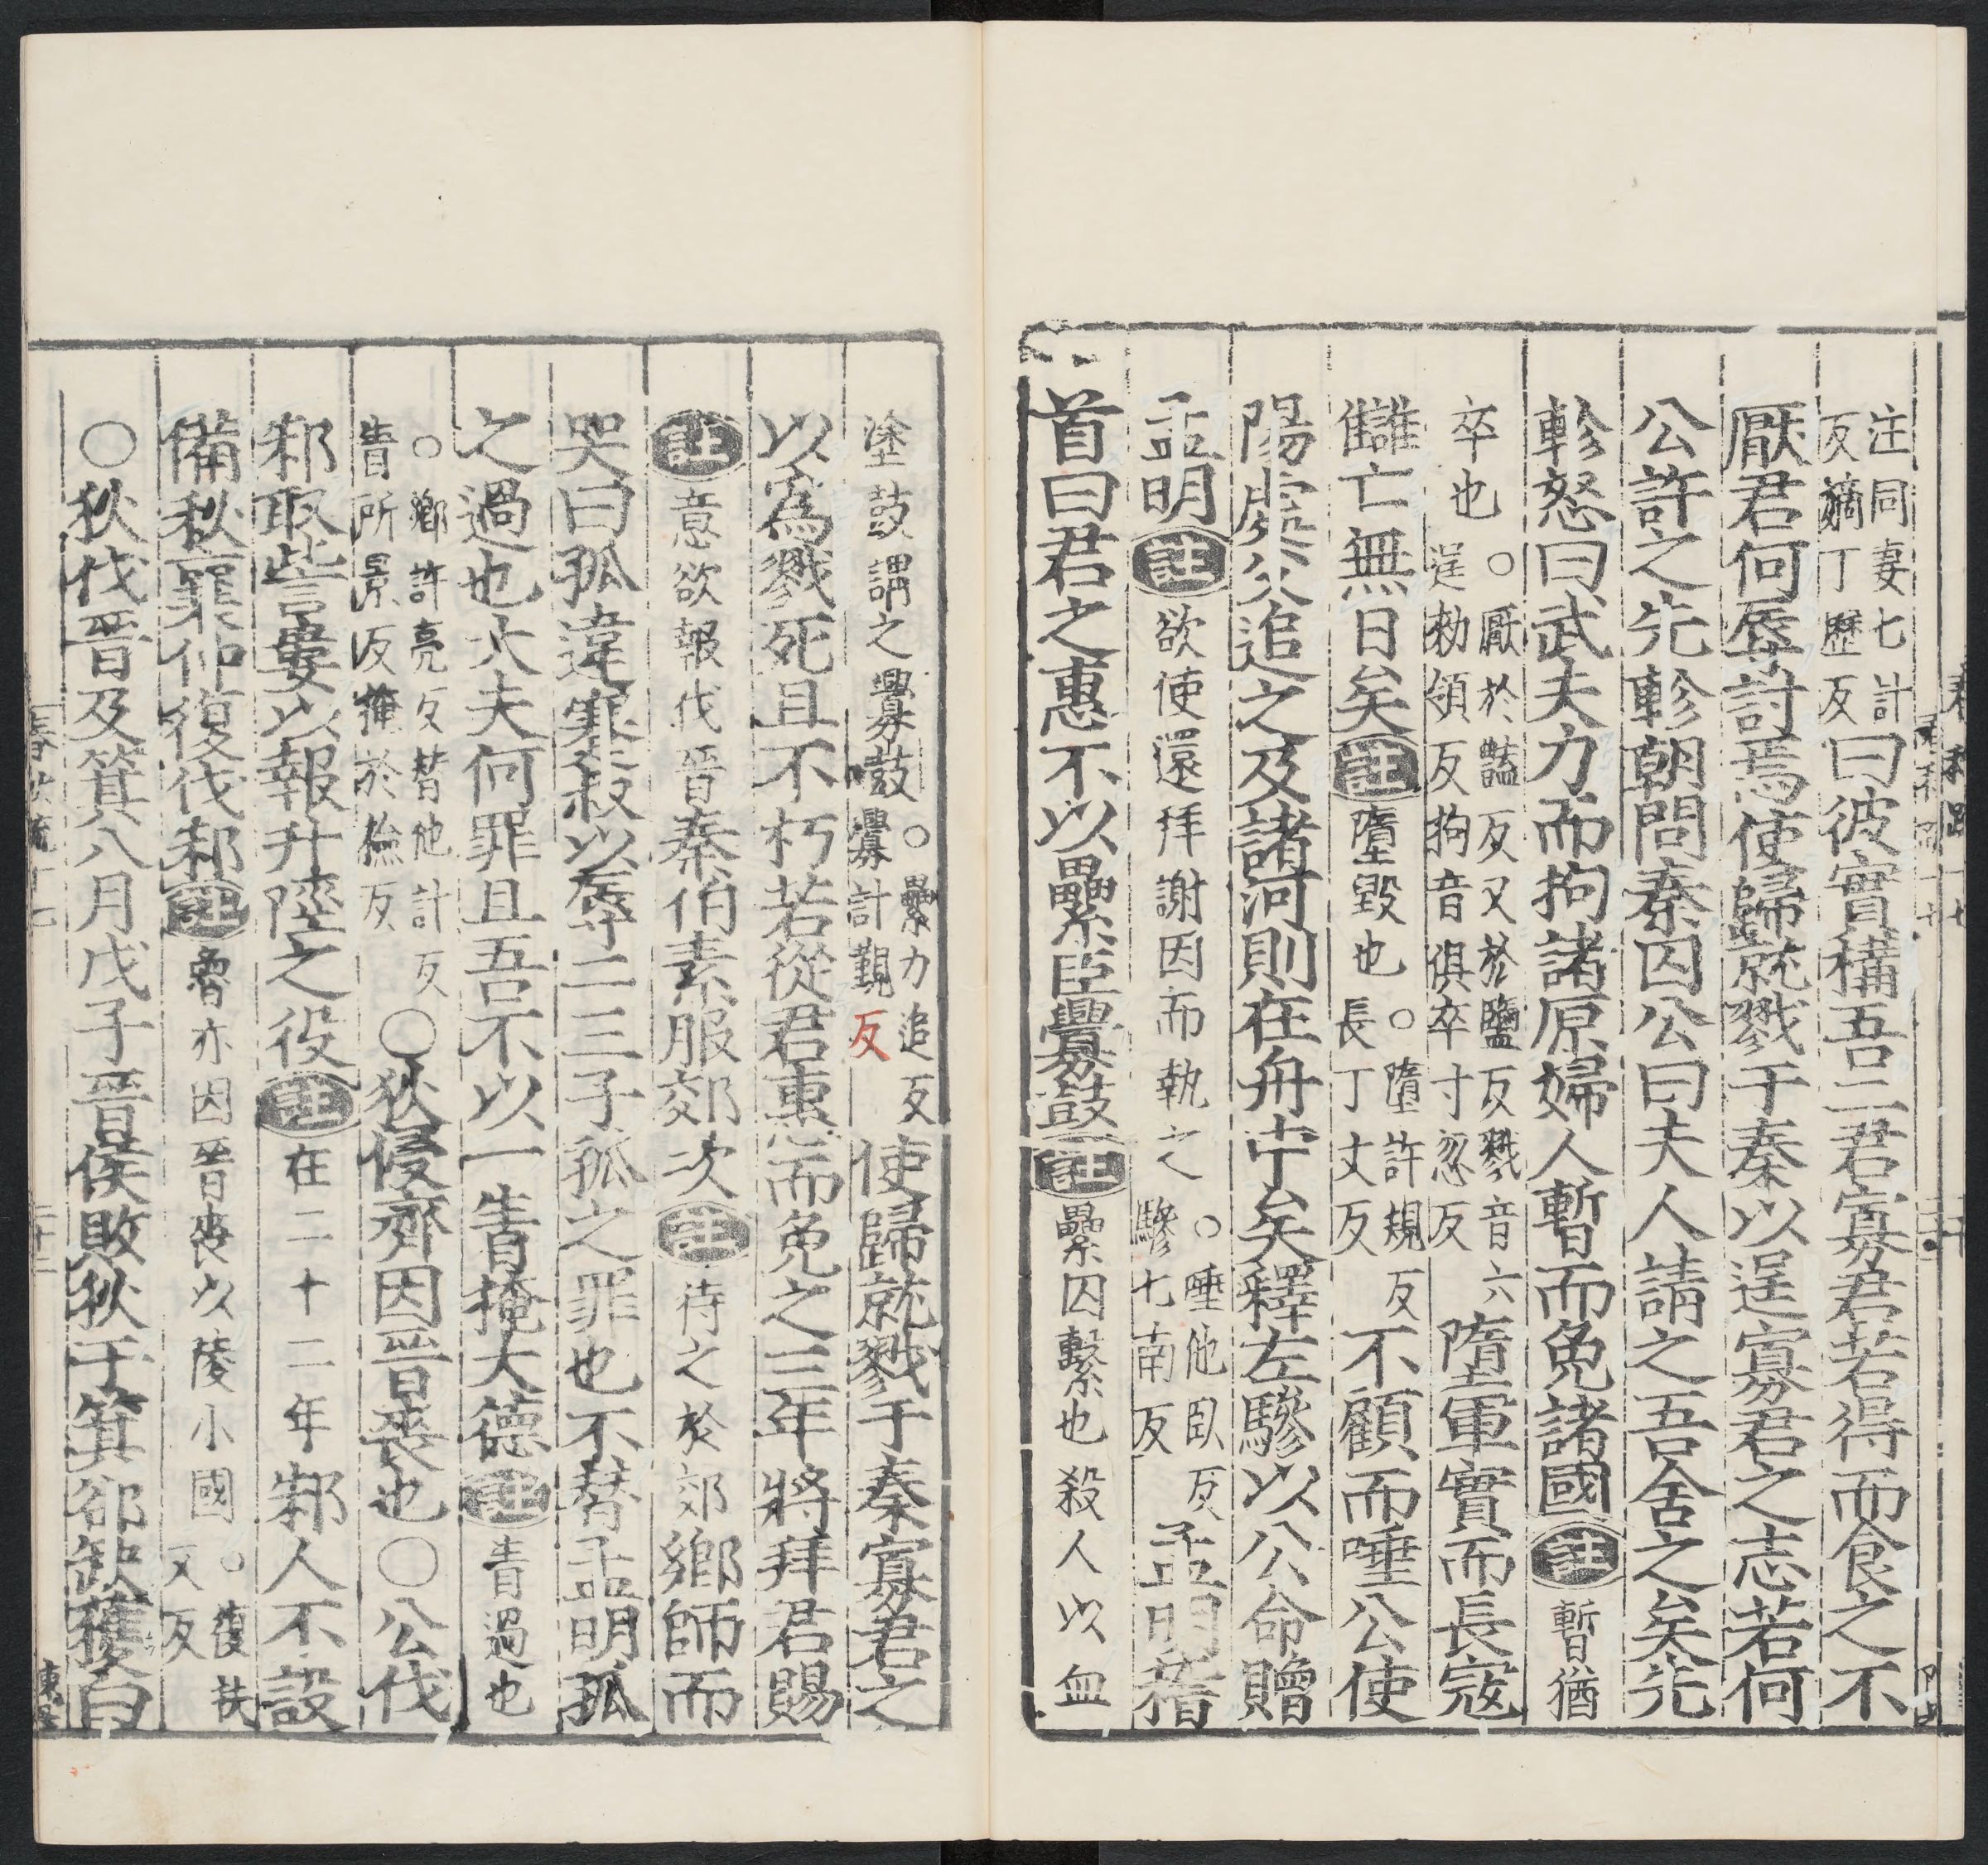 注同妻七計反嫡丁歷反曰彼實構吾二君寡君若得而食之不
厭君何辱討焉使歸就戮于秦以逞寡君之志若何
公許之先軫朝問秦囚公曰夫人請之吾舍之矣先
軫怒曰武夫力而拘諸原婦人暫而免諸國註暫猶
卒也○厭於豔反又於鹽反戮音六逞勑領反拘音俱卒寸忽反墮軍實而長寇
讎亡無日矣註墮毀也○墮許規反長丁丈反不顧而唾公使
陽處父追之及諸河則在舟中矣釋左驂以公命贈
孟明註欲使還拜謝因而執之○唾他臥反驂七南反孟明稽
首曰君之惠不以纍臣釁鼓註纍囚繫也殺人以血
塗鼓謂之釁鼓○纍力追反釁計觀反使歸就戮于秦寡君之
以為戮死且不朽若從君惠而免之三年將拜君賜
註意欲報伐晉秦伯素服郊次註待之於郊鄉師而
哭曰孤違蹇叔以辱二三子孤之罪也不替孟明孤
之過也大夫何罪且吾不以一眚掩大德註眚過也
○鄉許亮反替他計反眚所景反掩於檢反○狄侵齊因晉喪也○公伐
邾取訾婁以報升陘之役註在二十二年邾人不設
備秋襄仲復伐邾註魯亦因晉喪以陵小國○復扶又反
○狄伐晉及箕八月戊子晉侯敗狄于箕郤缺獲白